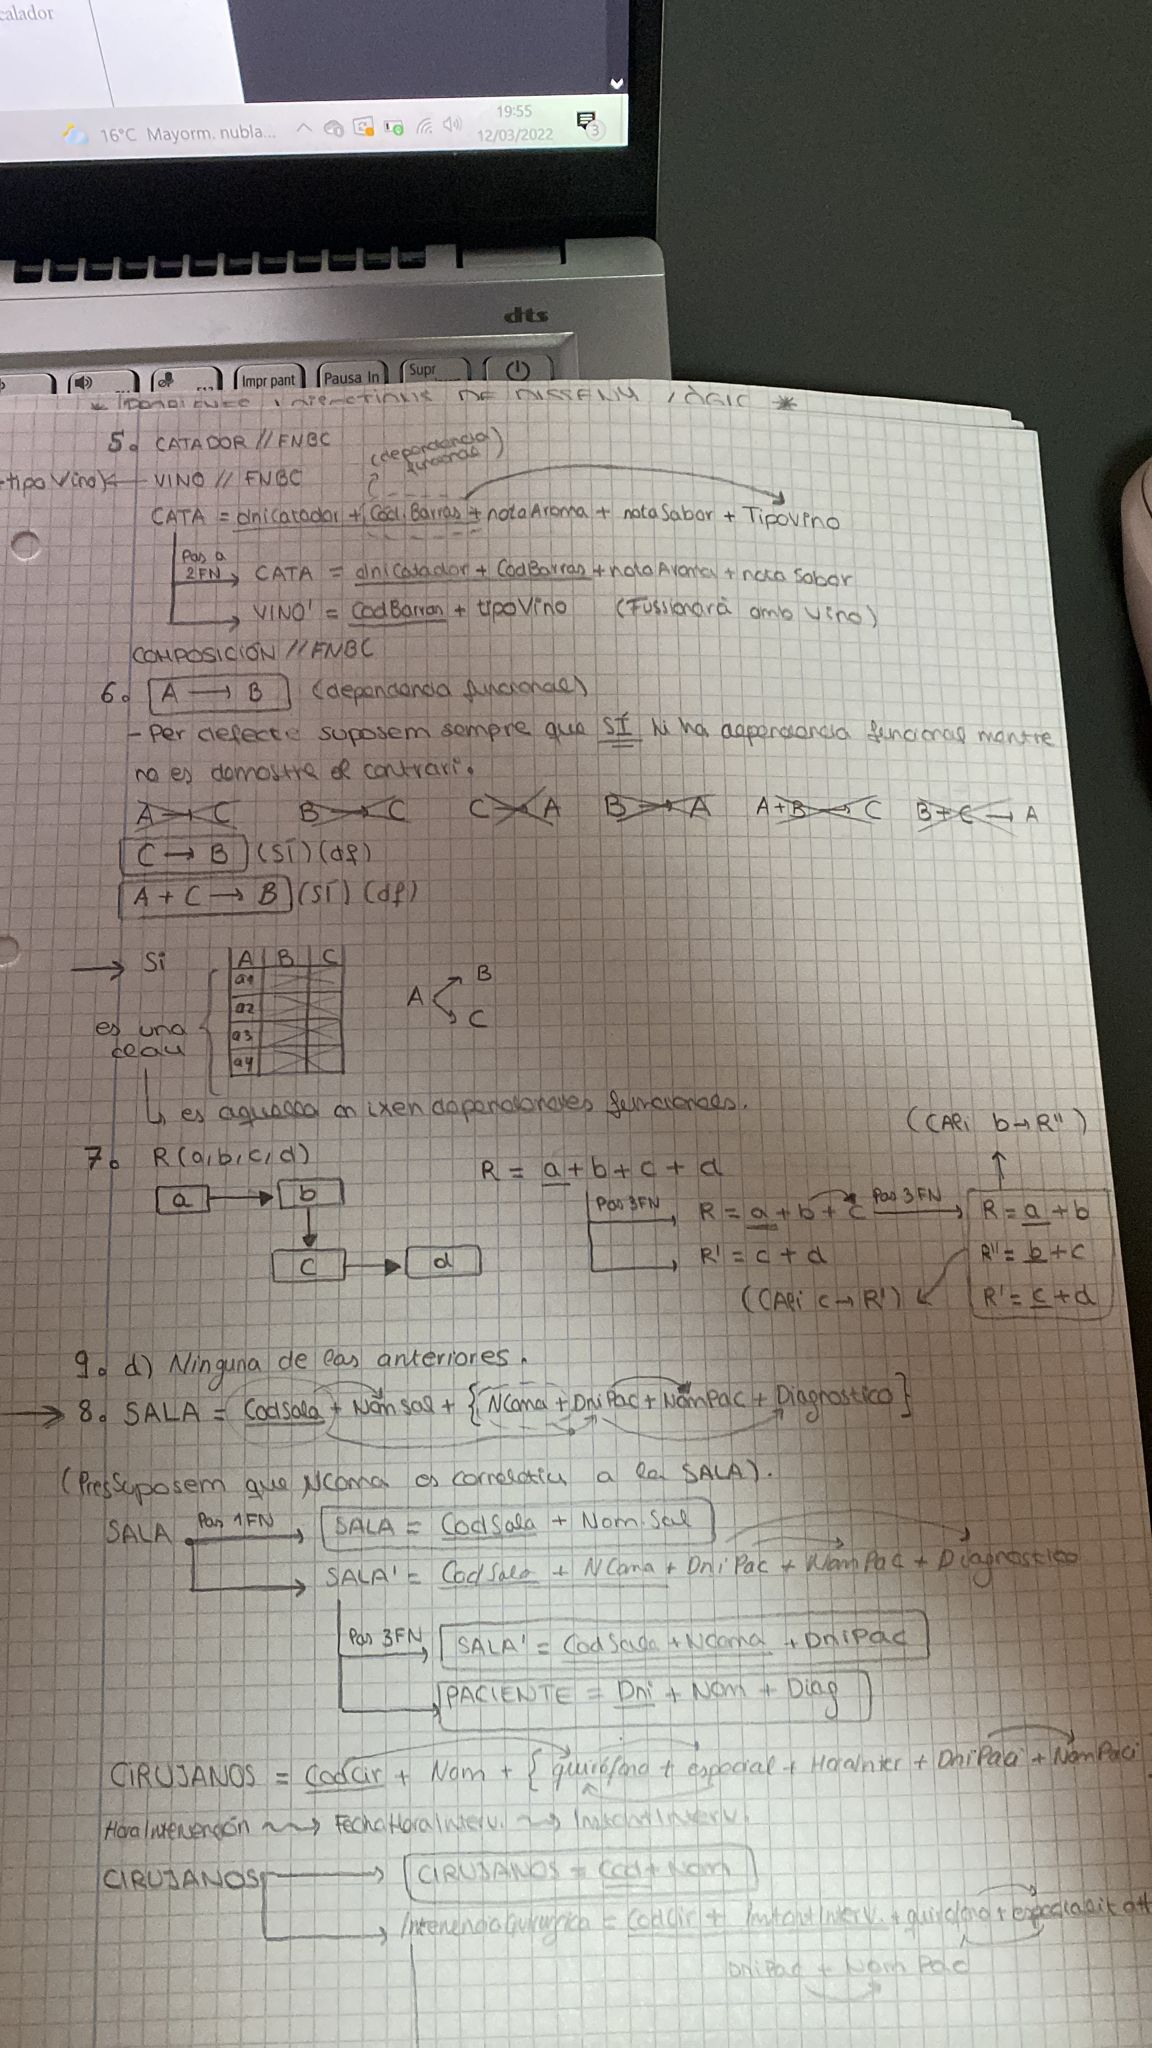 calador
16°C Mayorm. nubla...
19:55
12/03/2022
3
dts
Impr pant
Pausa In
Supr
DE DISSENY LÒGIC *
5. CATADOR // FNBC
(dependencia funcional)
tipo Vino) ← VINO // FNBC
CATA = dniCatador + Cod.Barras + notaAroma + notaSabor + TipoVino
Pas a 2FN → CATA = dniCatador + CodBarras + notaAroma + nota Sabor
→ VINO' = CodBarras + tipoVino (Fussionarà amb vino)
COMPOSICIÓN // FNBC
6. A → B (dependencia funcional)
- Per defecte suposem sempre que SÍ hi ha dependencia funcional mentre
no es demostre el contrari.
A → C B → C C → A B → A A+B → C B+C → A
C → B (SÍ) (df)
A + C → B (SÍ) (df)
→ Si
A B C
a1
a2
a3
a4
A B C
es una clau
↳ es aquella on ixen dependencies funcionals.
(CAPi b → R'')
7. R(a,b,c,d)
R = a + b + c + d
a → b
c → d
Pas 3FN → R = a + b + c Pas 3FN → R = a + b
→ R' = c + d
R'' = b + c
(CAPi c → R') R' = c + d
9. d) Ninguna de las anteriores.
→ 8. SALA = CodSala + NomSal + {NCama + DniPac + NomPac + Diagnostico}
(Pressuposem que NCama es correlatiu a la SALA).
SALA Pas 1FN → SALA = CodSala + Nom.Sal
→ SALA' = CodSala + NCama + DniPac + NomPac + Diagnostico
Pas 3FN → SALA' = CodSala + NCama + DniPac
PACIENTE = Dni + Nom + Diag
CIRUJANOS = CodCir + Nom + { quirófano + especial + HoraInter + DniPaci + NomPaci
HoraIntervención ⇝ FechaHoraInterv. ⇝ InstantInterv.
CIRUJANOS → CIRUJANOS = Cod + Nom
→ = CodCir + InstantInterv. + quirofano +
DniPac + NomPac